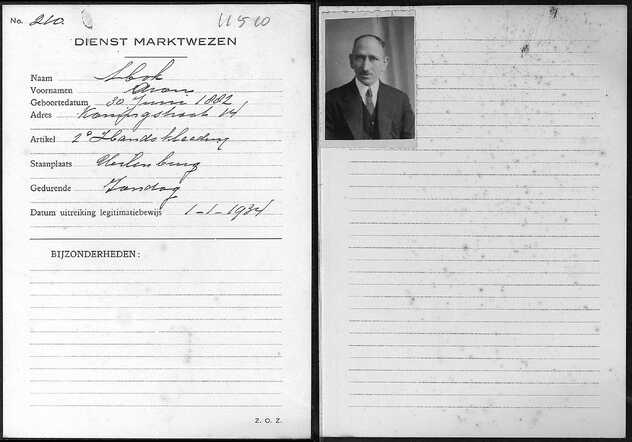 No. 210.
11510
DIENST MARKTWEZEN
Naam Abok
Voornamen Aron
Geboortedatum 30 Juni 1882
Adres 14
Artikel 2e Handskleeding
Staanplaats Uilenburg
Gedurende Zondag
Datum uitreiking legitimatiebewijs 1-1-1934
BIJZONDERHEDEN:
Z. O. Z.